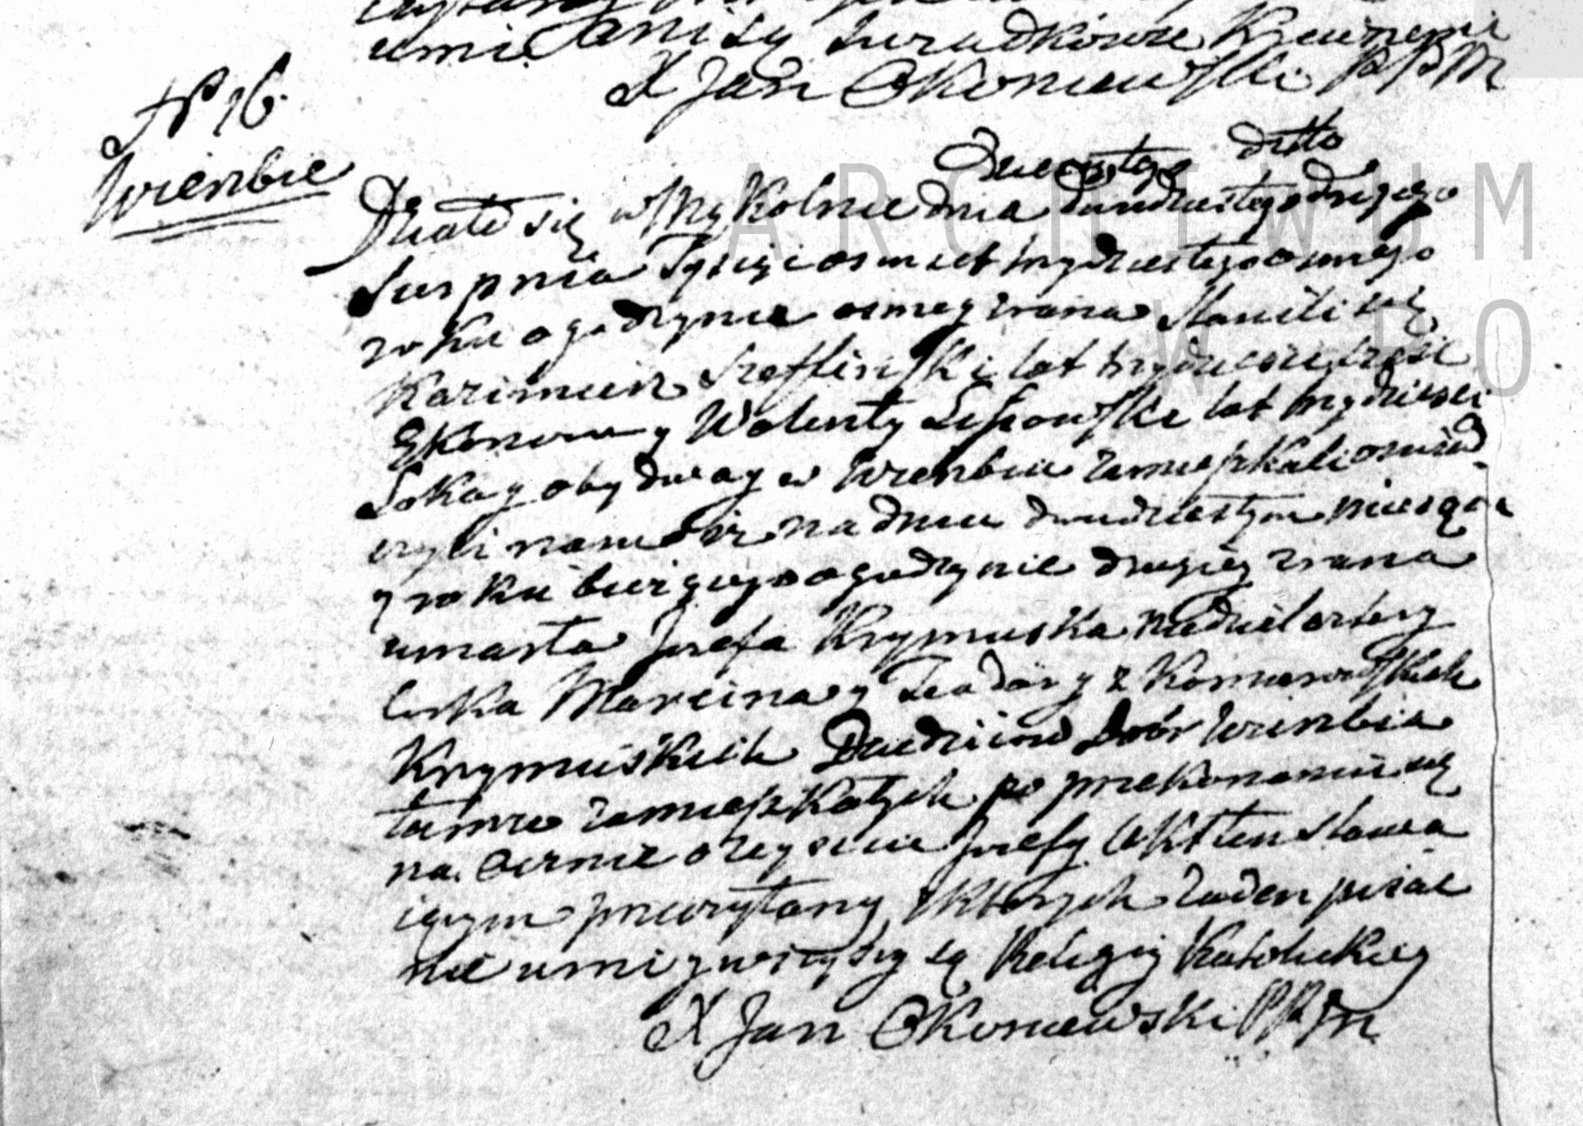 umie Ani są Świadkowie Krewnemi
X Jan Okoniewski P P M
N 16.
Wierzbie
Dziesiątego ditto
Działo się w Mykolnie dnia dwudziestego drugiego
Sierpnia Tysiąc osmset trzydziestego osmego
roku o godzynie osmey zrana Stawili się
Kazimierz Szefliński lat trzydzieści sześć
Ekonom y Walenty lat trzydzieści
Lokay obydway w Wierzbiu zamieszkali oswiad
czyli nam iż na dniu dwudziestym miesiąca
y roku bieżącego o godzynie drugiey zrana
umarła Jozefa Krzymuska niedziel cztery
Corka Marcina y Teodory z Komierowskich
Krzymuskich Dziedziców Dobr Wierzbia
tamże zamieszkałych po przekonaniu się
na. ocznie o zeyściu Jozefy Akt ten stawa
iącym przeczytany z ktorych żaden pisać
nie umi y wszyscy są Religiy Katolickiey
X Jan Okoniewski P P M
ARCHIWUM
W PO